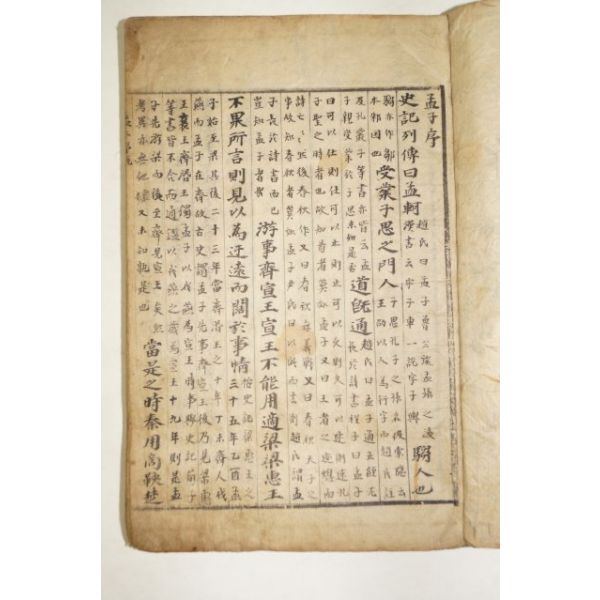 孟子序
史記列傳曰孟軻 趙氏曰孟子魯公族孟孫之後 漢書云字子車一說字子輿 騶人也
騶亦作鄒 本邾國也 受業子思之門人 子思孔子之孫名伋索隱云 王劭以人為衍字而趙氏註
及孔叢子等書亦皆云孟 子親受業於子思未知是否 道既通 趙氏曰孟子通五經尤 長於詩書程子曰孟子
曰可以仕則仕可以止則止可以久則久可以速則速孔
子聖之時者也故知易者莫如孟子又曰王者之迹熄而
詩亡〻〻然後春秋作又曰春秋無義戰又曰春秋天子之
事故知春秋者莫如孟子尹氏曰以此而言則趙氏謂孟
子長於詩書而已 豈知孟子者哉 游事齊宣王宣王不能用適梁梁惠王
不果所言則見以為迂遠而闊於事情 按史記梁惠王之 三十五年乙酉孟
子始至梁其後二十三年當齊湣王之十年丁未齊人伐
燕而孟子在齊故古史謂孟子先事齊宣王後乃見梁惠
王襄王齊湣王獨孟子以伐燕為宣王時事與史記荀子
等書皆不合而通鑑以伐燕之歲為宣王十九年則是孟
子先游梁而後至齊見宣王矣然 考異亦無他據又未知孰是也 當是之時秦用商鞅楚